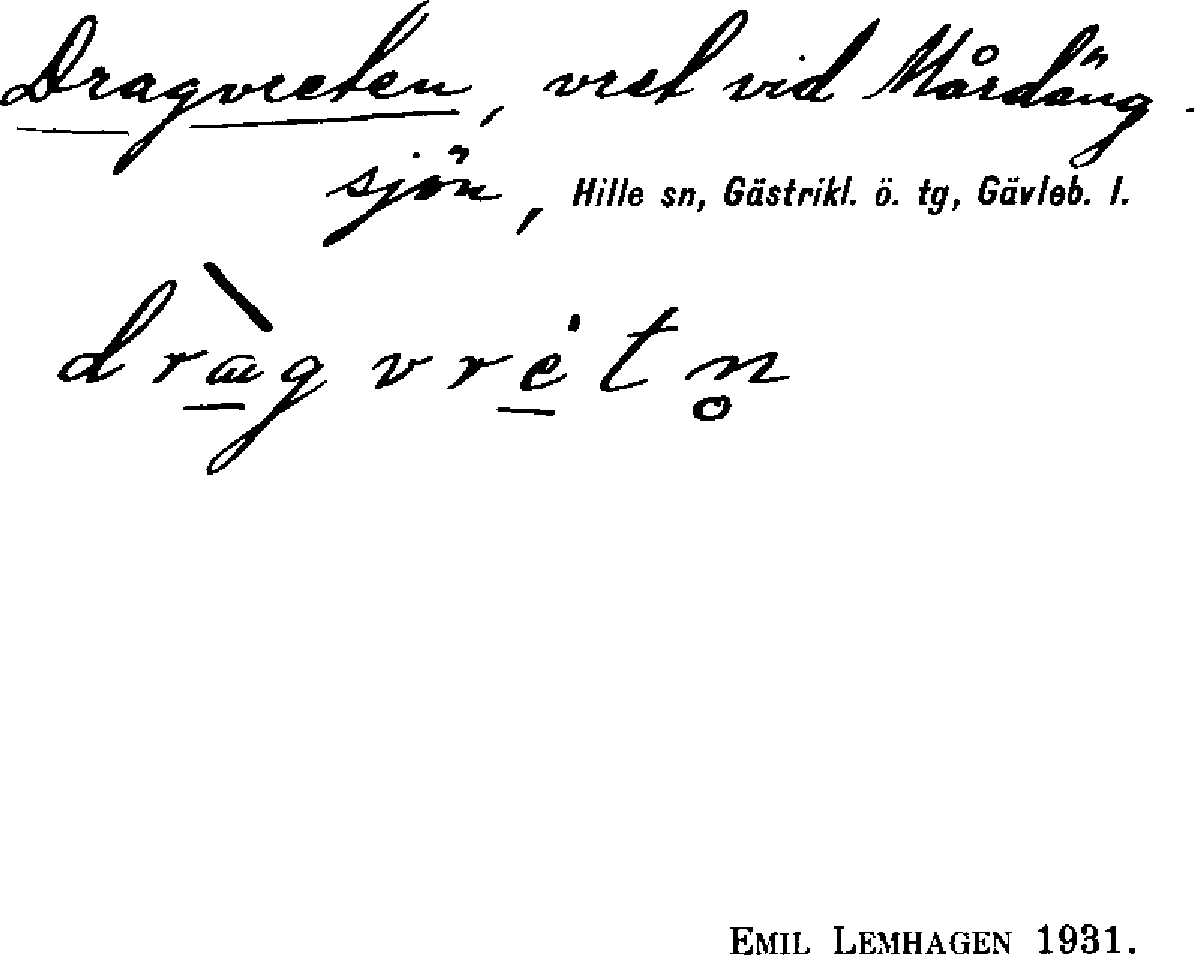 Dragvreten, vret vid Mårdäng-
sjön, Hille sn, Gästrikl. ö. tg, Gävleb. l.
dràg vrėt n̥
EMIL LEMHAGEN 1931.